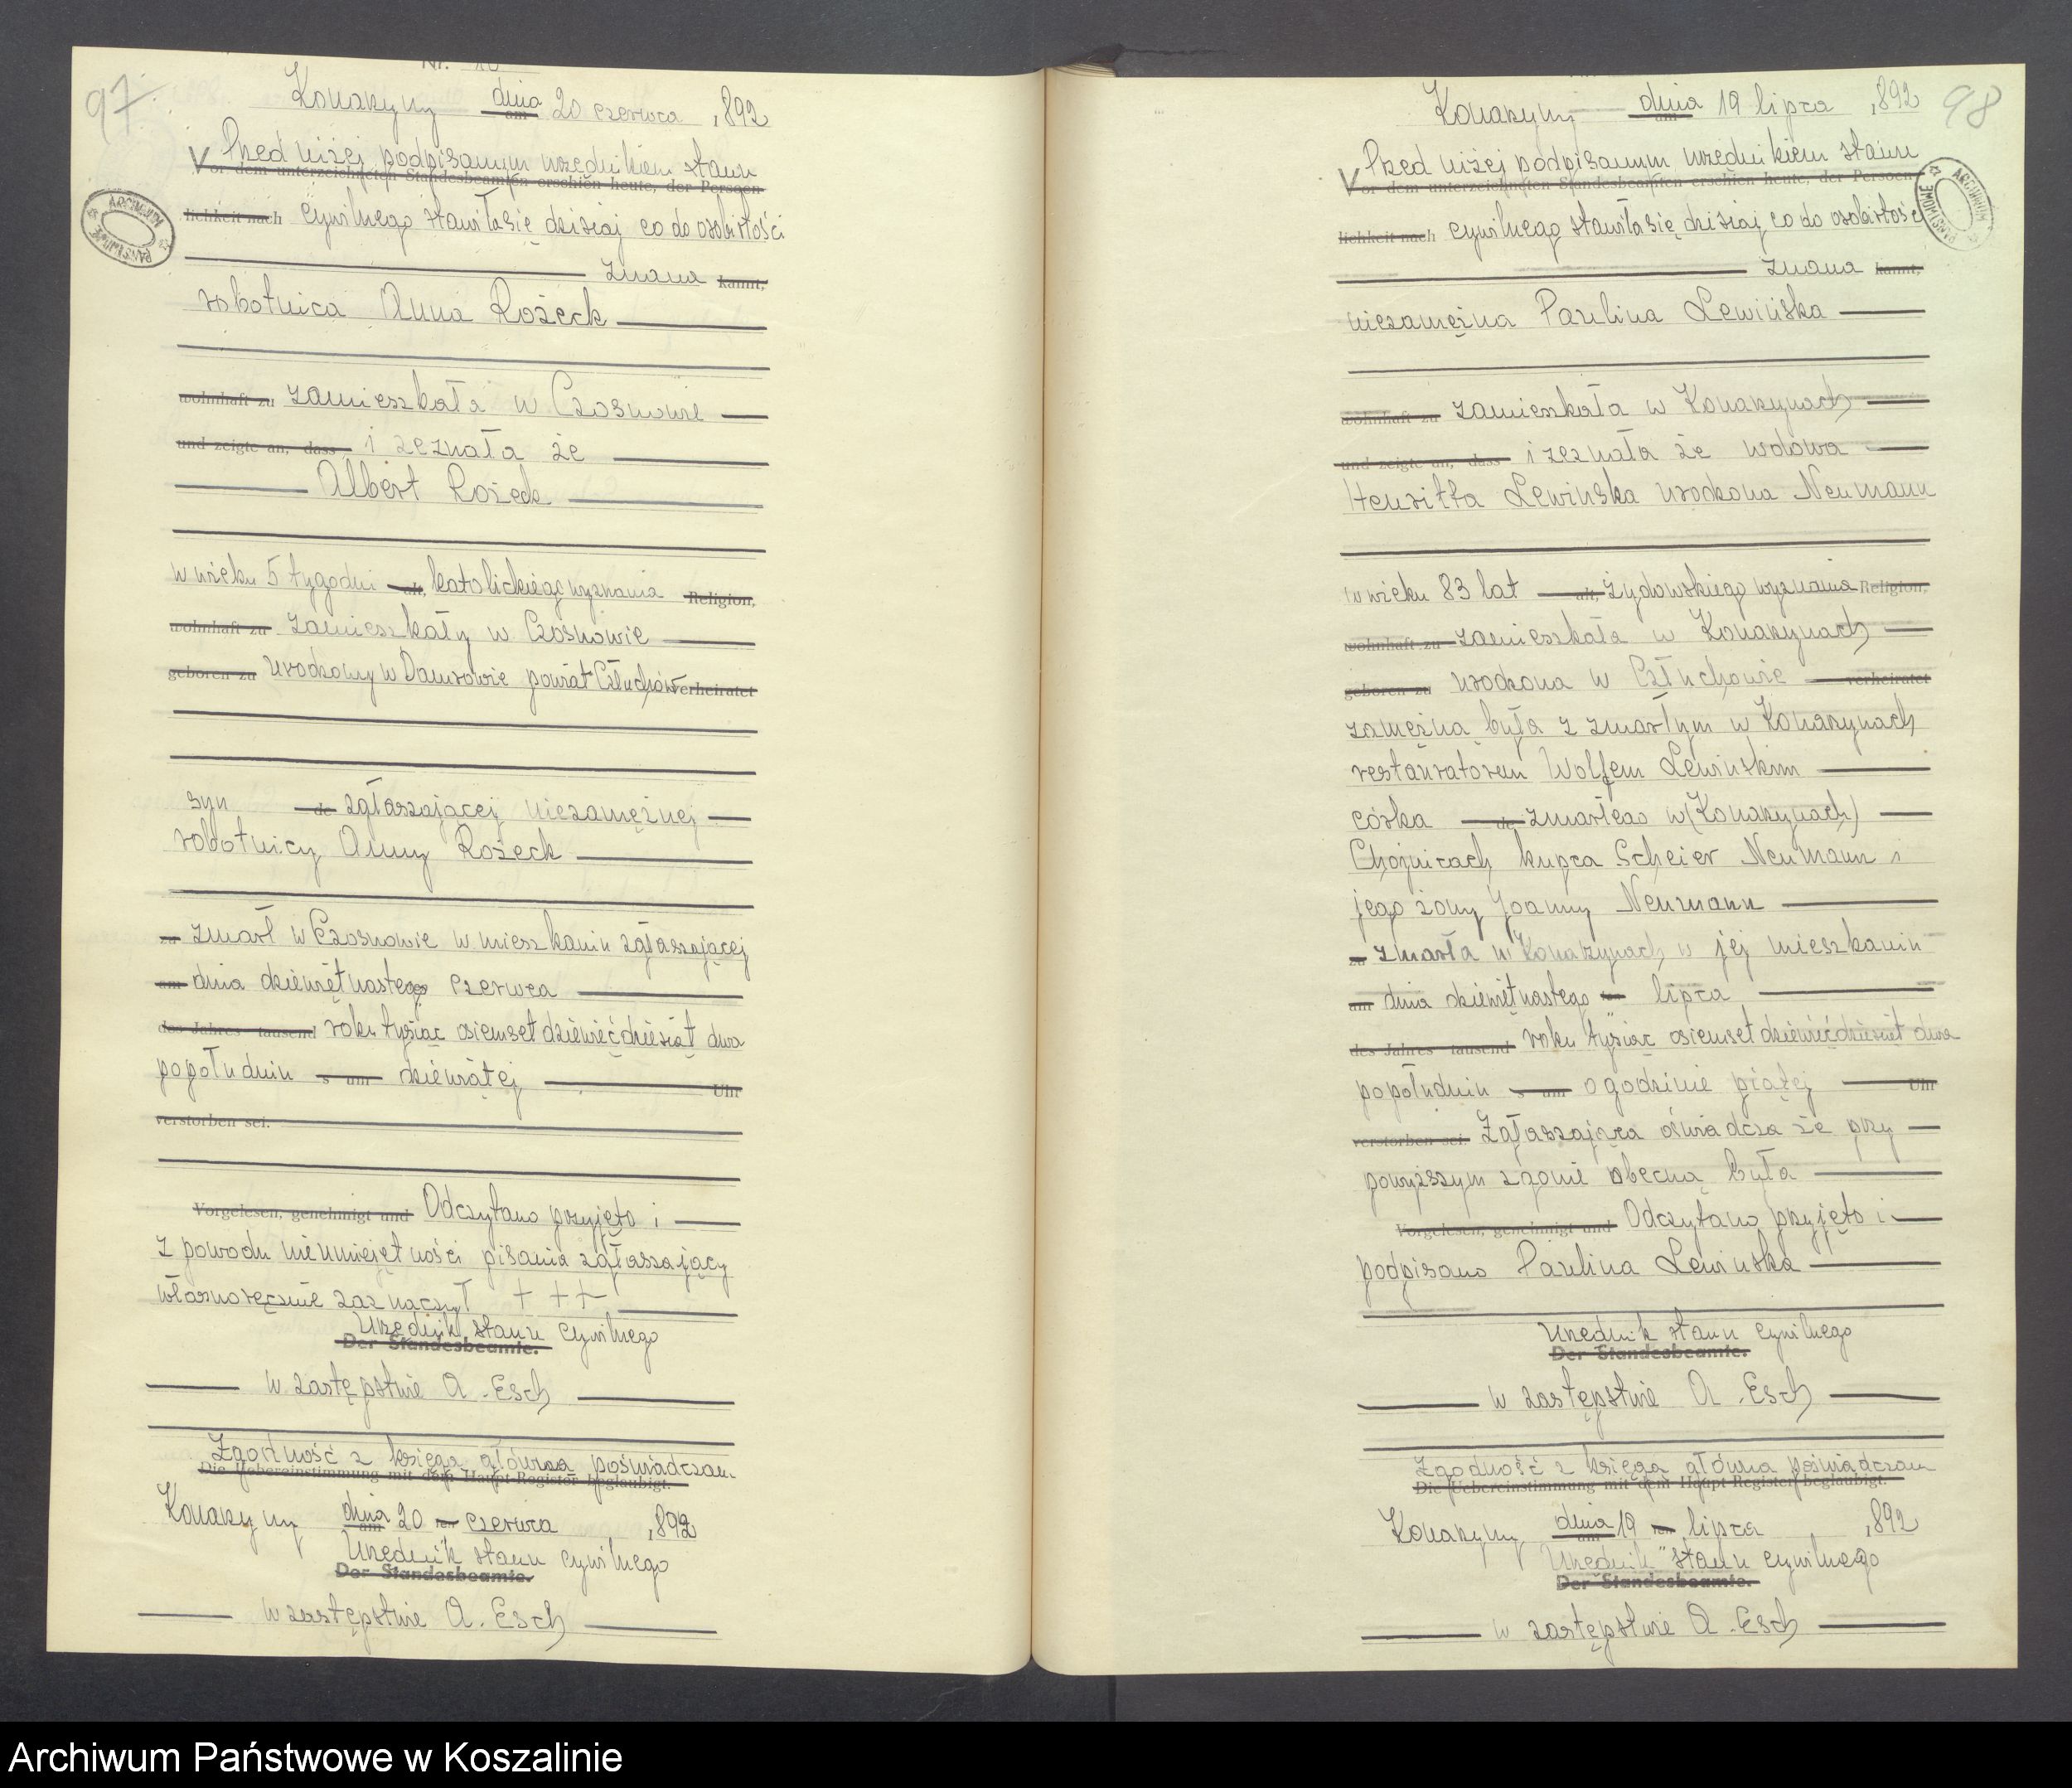 97
Konarzyny dnia am 20 czerwca 1892
Przed niżej podpisanym urzędnikiem stanu
Vor dem unterzeichneten Standesbeamten erschien heute, der Persoen-
lichkeit nach cywilnego stawiła się dzisiaj co do osobistości
znana kannt,
robotnica Anna Rożeck
wohnhaft zu zamieszkała w Czosnowie
und zeigte an, dass i zeznała że
Albert Rożeck
w wieku 5 tygodni alt, katolickiego wyznania Religion,
wohnhaft zu zamieszkały w Czosnowie
geboren zu urodzony w Damrowie powiat Człuchów verheiratet
syn de zgłaszającej niezamężnej
robotnicy Anny Rożeck
zu zmarł w Czosnowie w mieszkaniu zgłaszającej
am dnia dziewiętnastego czerwca
des Jahres tausend roku tysiąc osiemset dziewięćdziesiąt dwa
popołudniu s um dziewiątej Uhr
verstorben sei.
Vorgelesen, genehmigt und Odczytano przyjęto i
z powodu nieumiejętności pisania zgłaszający
własnoręcznie zaznaczył + + +
Urzędnik stanu cywilnego
Der Standesbeamte.
w zastępstwie A. Esch
Zgodność z księgą główną poświadczam
Die Uebereinstimmung mit dem Haupt-Register beglaubigt.
Konarzyny dnia am 20 ten czerwca 1892
Urzędnik stanu cywilnego
Der Standesbeamte.
w zastępstwie A. Esch
ARCHIWUM PAŃSTWOWE
98
Konarzyny dnia am 19 lipca 1892
Przed niżej podpisanym urzędnikiem stanu
Vor dem unterzeichneten Standesbeamten erschien heute, der Persoen-
lichkeit nach cywilnego stawiła się dzisiaj co do osobistości
znana kannt,
niezamężna Paulina Lewińska
wohnhaft zu zamieszkała w Konarzynach
und zeigte an, dass i zeznała że wdowa
Henritta Lewinska urodzona Neumann
w wieku 83 lat alt, żydowskiego wyznania Religion,
wohnhaft zu zamieszkała w Konarzynach
geboren zu urodzona w Człuchowie verheiratet
zamężną była z zmarłym w Konarzynach
restauratorem Wolfem Lewinskim
córka de zmarłego w (Konarzynach)
Chojnicach kupca Scheier Neumann i
jego żony Joanny Neumann
zu zmarła w Konarzynach w jej mieszkaniu
am dnia dziewiętnastego ten lipca
des Jahres tausend roku tysiąc osiemset dziewięćdziesiąt dwa
popołudniu s um o godzinie piątej Uhr
verstorben sei. Zgłaszająca oświadcza że przy
powyższym zgonie obecną była
Vorgelesen, genehmigt und Odczytano przyjęto i
podpisano Paulina Lewinska
Urzednik stanu cywilnego
Der Standesbeamte.
w zastępstwie A. Esch
Zgodność z księgą główna poświadczam
Die Uebereinstimmung mit dem Haupt-Register beglaubigt.
Konarzyny dnia am 19 ten lipca 1892
Urzędnik stanu cywilnego
Der Standesbeamte.
w zastępstwie A. Esch
ARCHIWUM PAŃSTWOWE
Archiwum Państwowe w Koszalinie